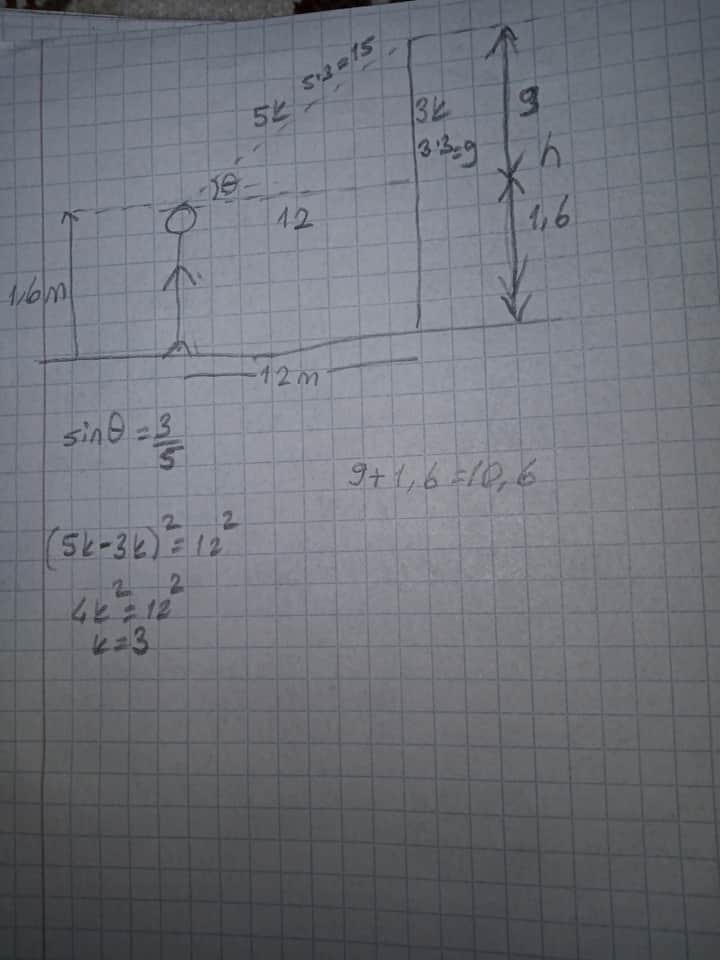 5·3=15
5k
3k
9
3·3=9
h
θ
12
1,6
1,6m
12m
sinθ = 3/5
9+1,6=10,6
(5k-3k)²=12²
4k²=12²
k=3